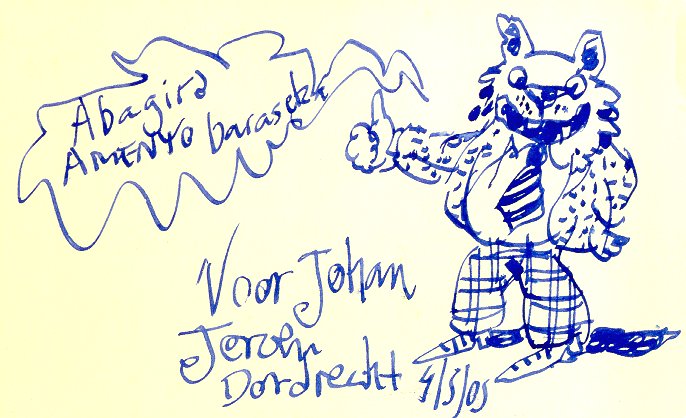 Abagira
AMENYO baraseka
Voor Johan
Jeroen
Dordrecht 4/5/05